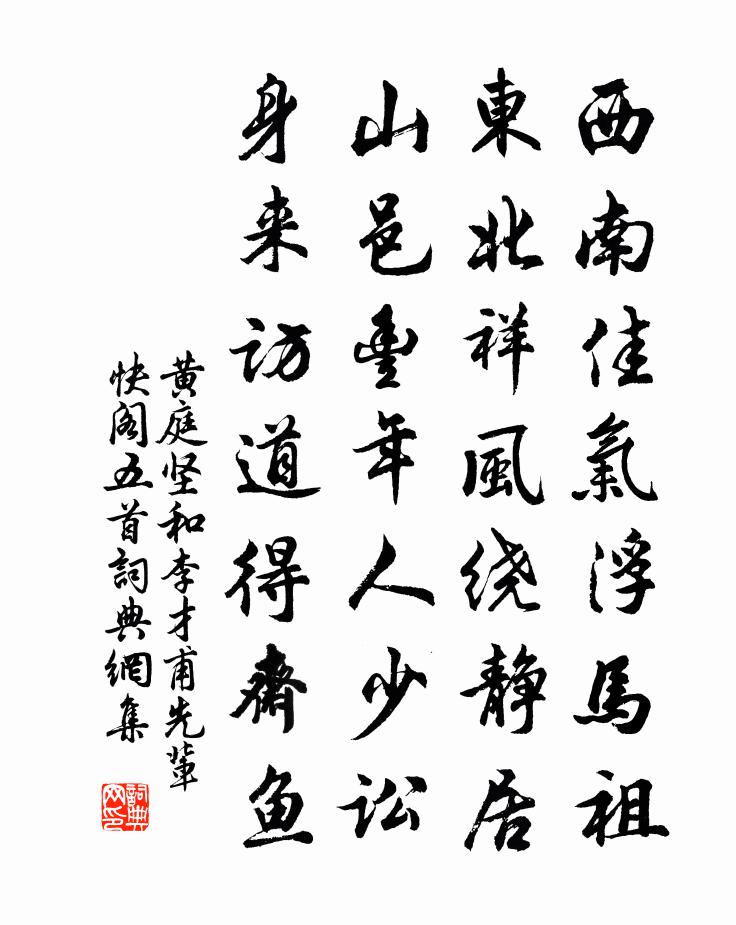 西南佳氣浮馬祖
東北祥風绕静居
山邑豊年人少訟
身来访道得齋鱼
黄庭坚和李才甫先輩
快阁五首詞典網集
詞典网印